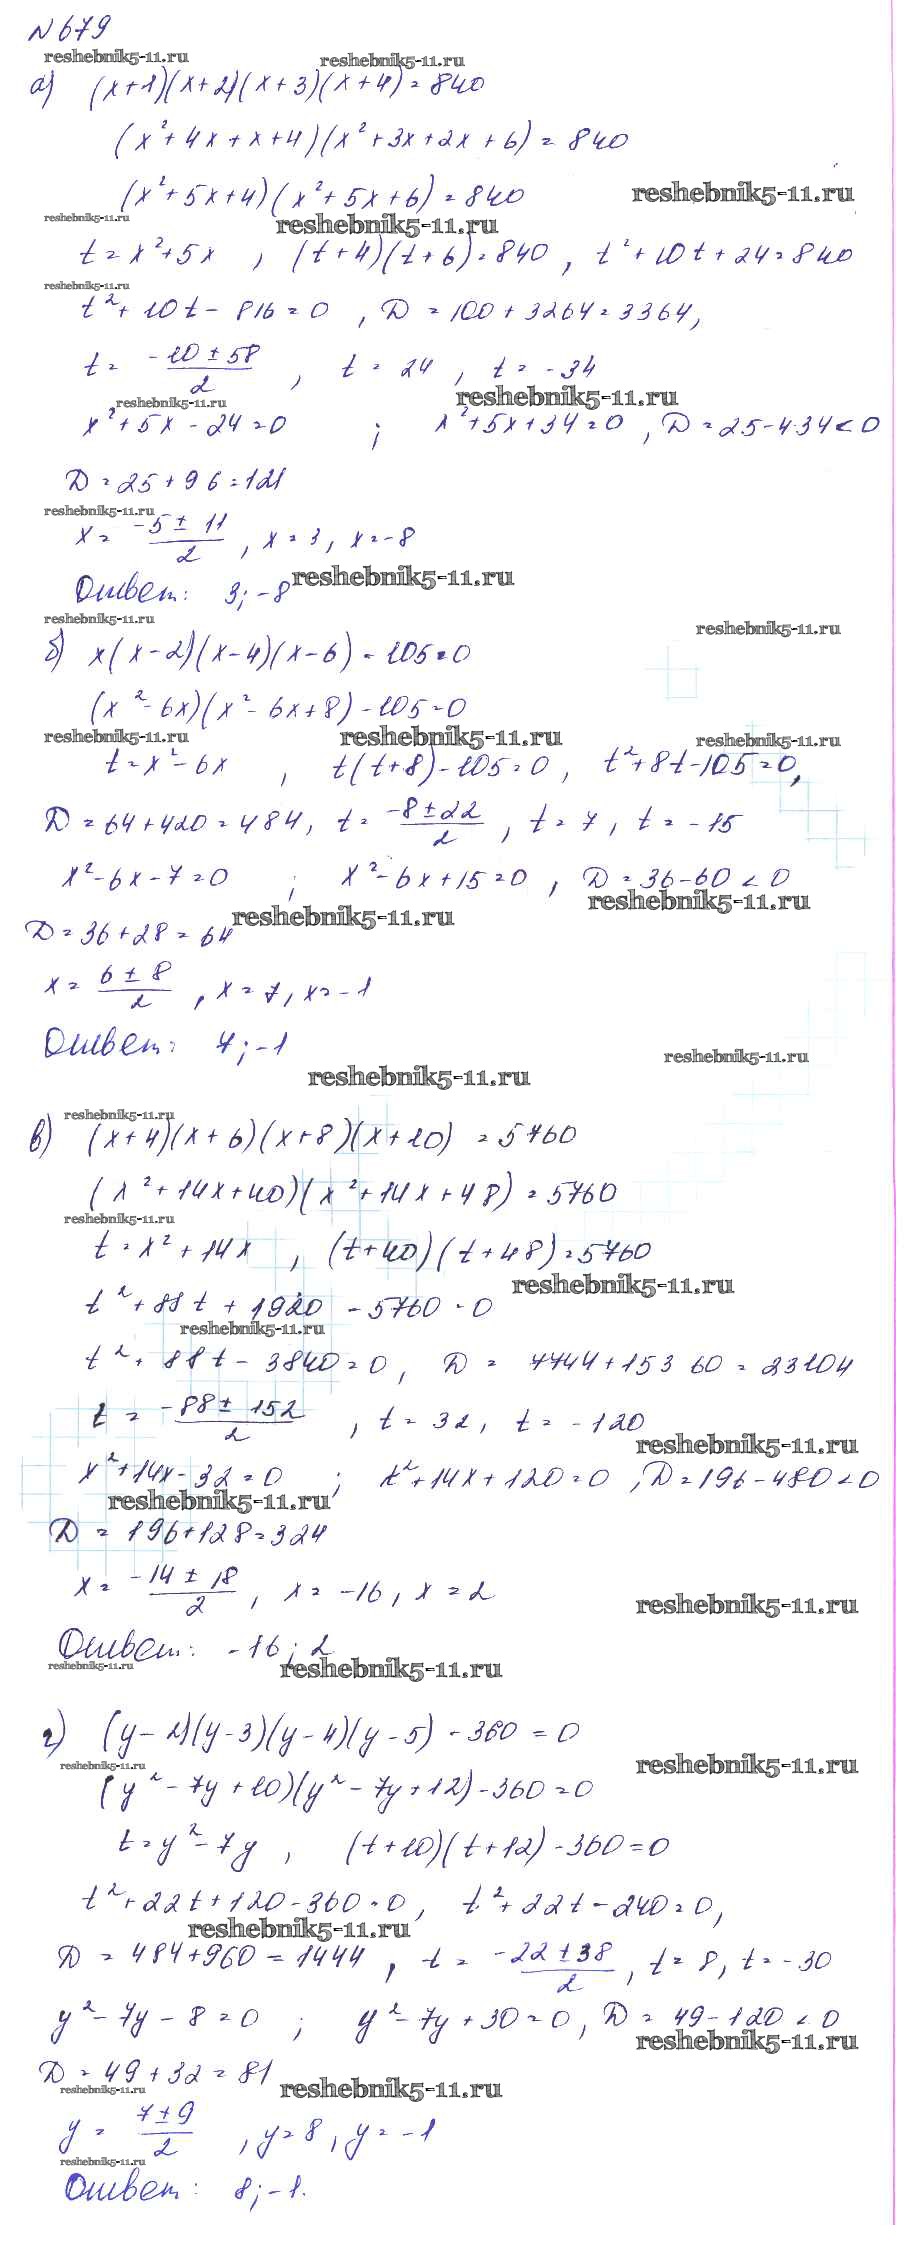 N 679
reshebnik5-11.ru reshebnik5-11.ru
а) (x+1)(x+2)(x+3)(x+4)=840
(x²+4x+x+4)(x²+3x+2x+6)=840
(x²+5x+4)(x²+5x+6)=840 reshebnik5-11.ru
reshebnik5-11.ru reshebnik5-11.ru
t=x²+5x , (t+4)(t+6)=840 , t²+10t+24=840
reshebnik5-11.ru
t²+10t-816=0 , D=100+3264=3364,
t= (-10±58)/2 , t=24 , t=-34
reshebnik5-11.ru reshebnik5-11.ru
x²+5x-24=0 ; x²+5x+34=0 , D=25-4·34<0
D=25+96=121
reshebnik5-11.ru
x= (-5±11)/2 , x=3, x=-8
reshebnik5-11.ru
Ответ: 3;-8
reshebnik5-11.ru reshebnik5-11.ru
б) x(x-2)(x-4)(x-6)-105=0
(x²-6x)(x²-6x+8)-105=0
reshebnik5-11.ru reshebnik5-11.ru reshebnik5-11.ru
t=x²-6x , t(t+8)-105=0, t²+8t-105=0,
D=64+420=484, t= (-8±22)/2 , t=7, t=-15
x²-6x-7=0 ; x²-6x+15=0 , D=36-60<0
reshebnik5-11.ru reshebnik5-11.ru
D=36+28=64
x= (6±8)/2 , x=7, x=-1
Ответ: 7;-1
reshebnik5-11.ru reshebnik5-11.ru
reshebnik5-11.ru
в) (x+4)(x+6)(x+8)(x+10)=5760
(x²+14x+40)(x²+14x+48)=5760
reshebnik5-11.ru
t=x²+14x , (t+40)(t+48)=5760
reshebnik5-11.ru
t²+88t+1920-5760=0
reshebnik5-11.ru
t²+88t-3840=0, D=7744+15360=23104
t= (-88±152)/2 , t=32, t=-120
reshebnik5-11.ru
x²+14x-32=0 ; x²+14x+120=0 , D=196-480<0
reshebnik5-11.ru
D=196+128=324
x= (-14±18)/2 , x=-16, x=2
reshebnik5-11.ru
Ответ: -16;2
reshebnik5-11.ru reshebnik5-11.ru
г) (y-2)(y-3)(y-4)(y-5)-360=0
reshebnik5-11.ru reshebnik5-11.ru
(y²-7y+10)(y²-7y+12)-360=0
t=y²-7y , (t+10)(t+12)-360=0
t²+22t+120-360=0, t²+22t-240=0,
reshebnik5-11.ru
D=484+960=1444 , t= (-22±38)/2 , t=8, t=-30
y²-7y-8=0 ; y²-7y+30=0, D=49-120<0
reshebnik5-11.ru
D=49+32=81
reshebnik5-11.ru reshebnik5-11.ru
y= (7±9)/2 , y=8, y=-1
reshebnik5-11.ru
Ответ: 8;-1.